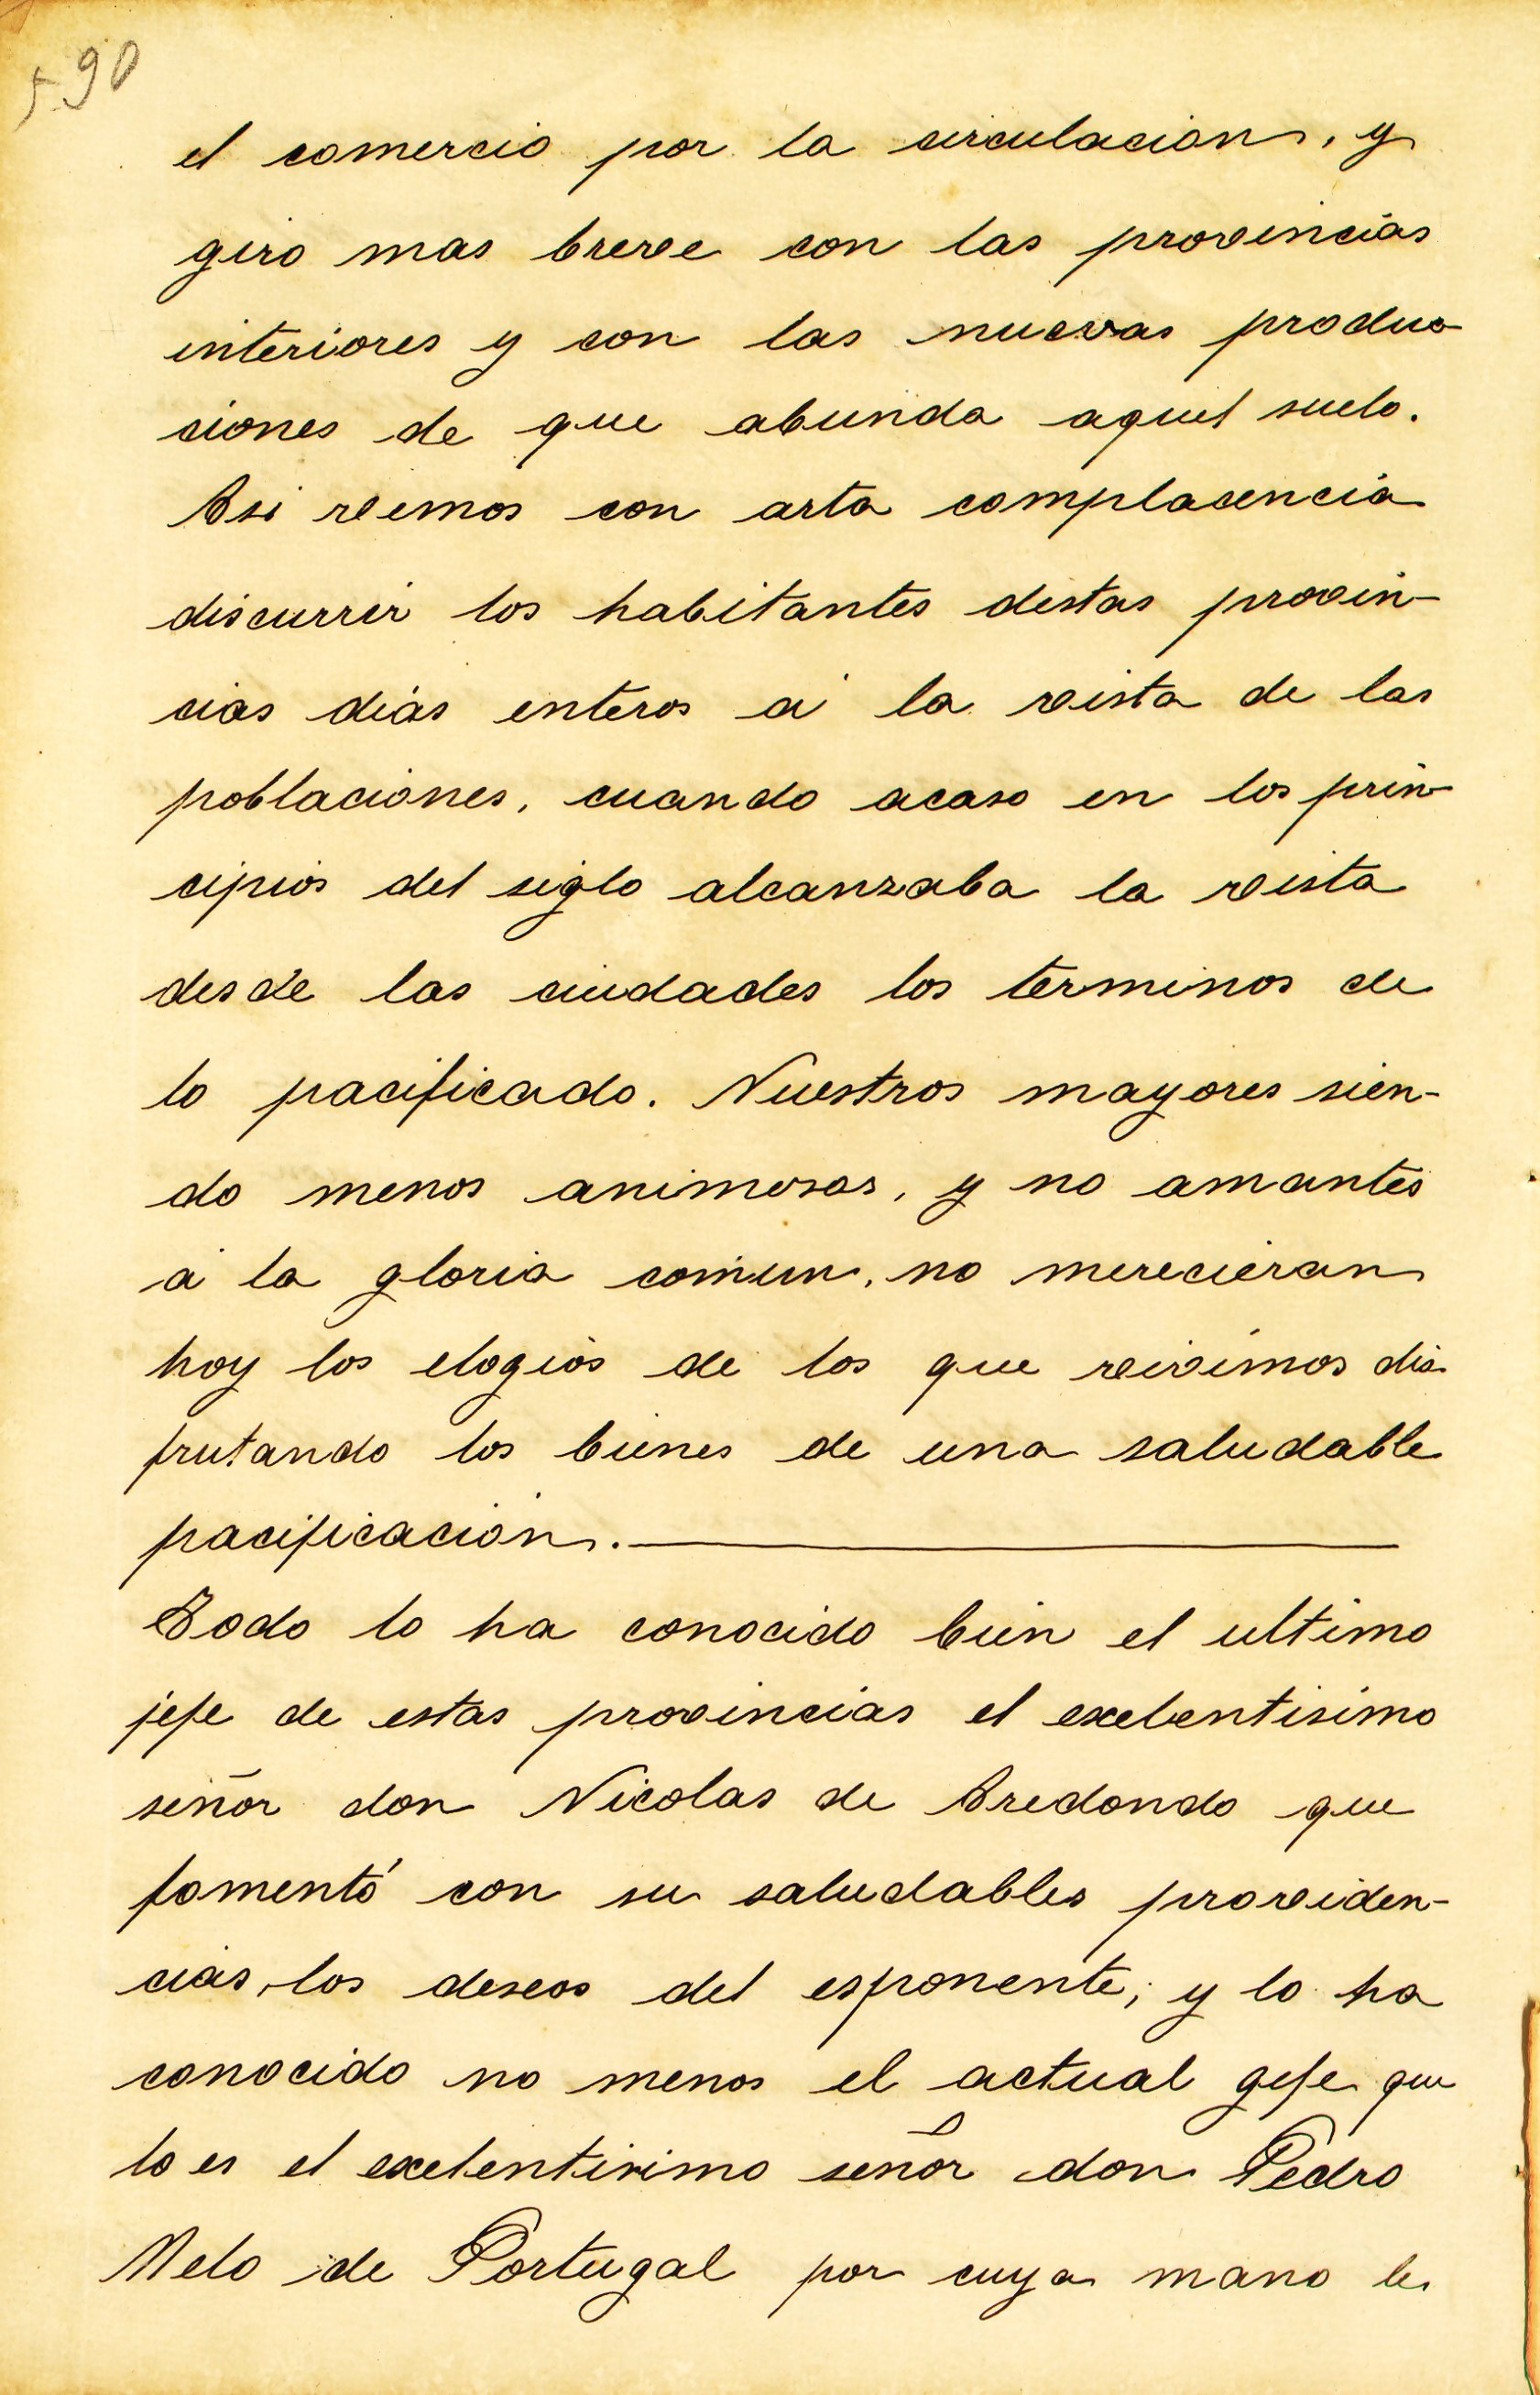 590
el comercio por la circulacion, y
giro mas breve con las provincias
interiores y con las nuevas produc
ciones de que abunda aquel suelo.
Asi vemos con arta complacencia
discurrir los habitantes destas provin-
cias dias enteros á la vista de las
poblaciones, cuando acaso en los prin-
cipios del siglo alcanzaba la vista
desde las ciudades los terminos de
lo pacificado. Nuestros mayores sien-
do menos animosos, y no amantes
á la gloria comun, no merecieran
hoy los elogios de los que vivimos dis
frutando los bienes de una saludable
pacificacion.
Todo lo ha conocido bien el ultimo
jefe de estas provincias el exelentisimo
señor don Nicolas de Aredondo que
fomentó con su saludables providen-
cias, los deseos del esponente; y lo ha
conocido no menos el actual gefe que
lo es el exelentisimo señor don Pedro
Melo de Portugal por cuya mano le